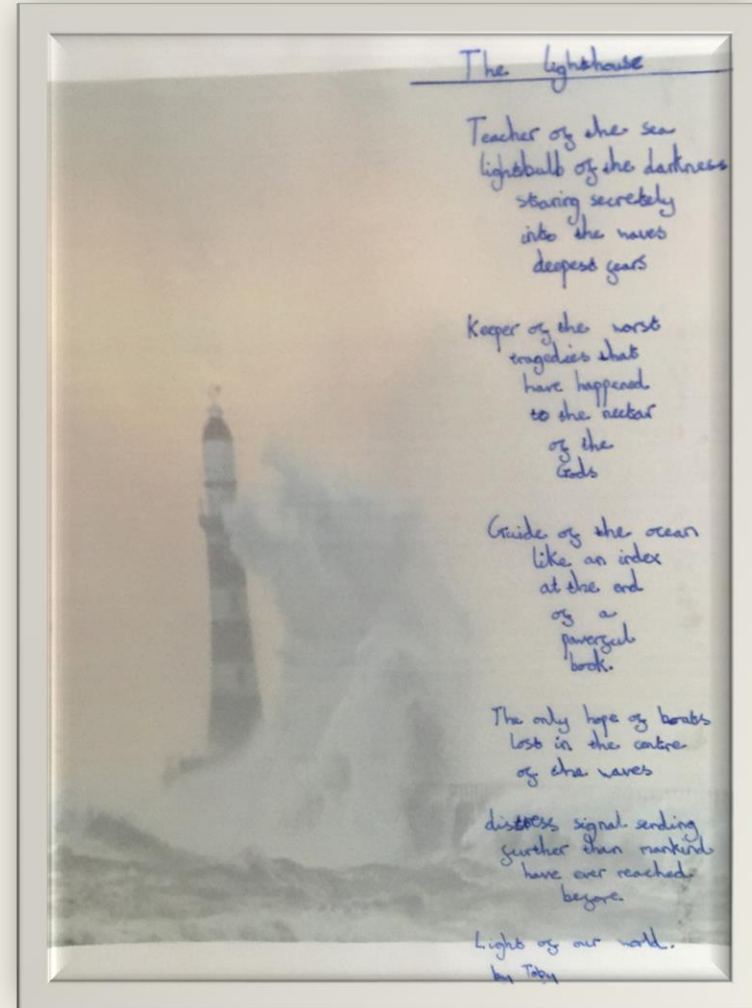 The lighthouse
Teacher of the sea
lightbulb of the darkness
staring secretely
into the waves
deepest fears
Keeper of the worst
tragedies that
have happened
to the nectar
of the
Gods
Guide of the ocean
like an index
at the end
of a
powerful
book.
The only hope of boats
lost in the centre
of the waves
distress signal sending
further than mankind
have ever reached
before.
Light of our world.
by Toby